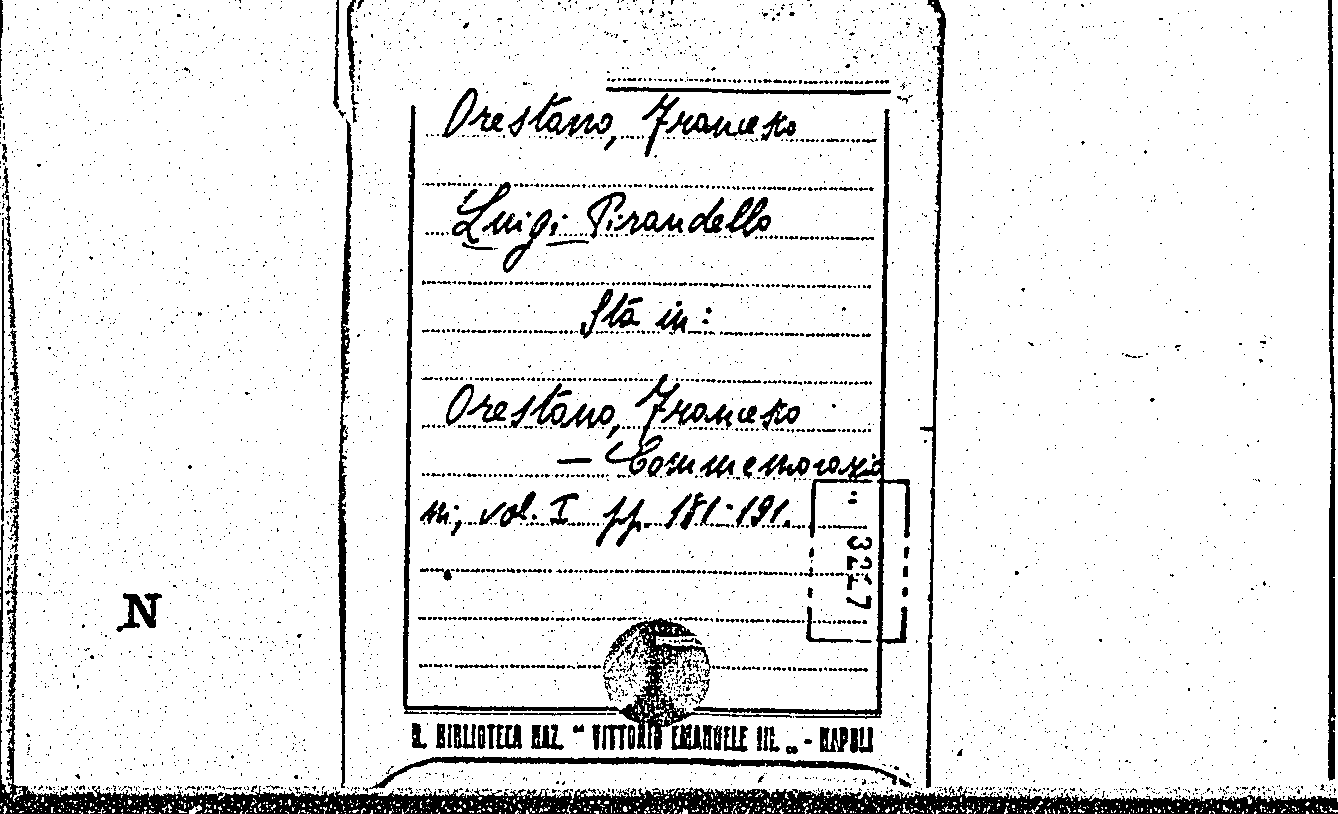 Orestano, Francesco
Luigi Pirandello
Sta in:
Orestano, Francesco
— Commemorazio
ni, vol. I pp. 181-191.
3217
N
R. BIBLIOTECA NAZ. “ VITTORIO EMANUELE III. „ - NAPOLI